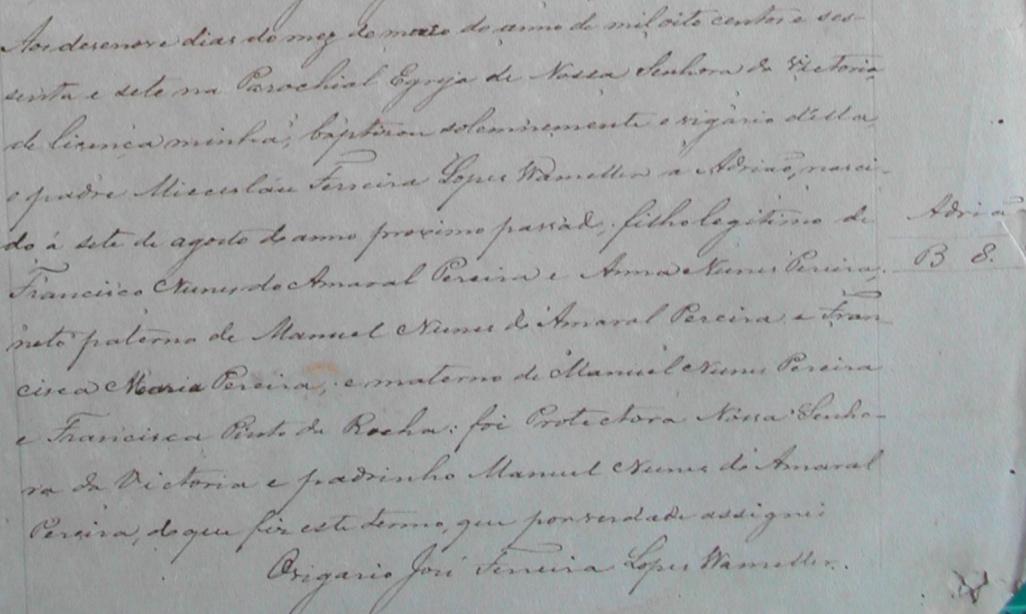 Aos desenove dias do mez de março do anno de mil oito centos e ses-
senta e sete na Parochial Egreja de Nossa Senhora da Victoria
de licença minha, baptisou solemnemente o vigario della,
o padre Miecesláu Ferreira Lopes Wameller a Adrião, nasci-
do á sete de agosto do anno proximo passado, filho legitimo de
Francisco Nunes do Amaral Pereira e Anna Nunes Pereira,
neto paterno de Manuel Nunes do Amaral Pereira e Fran
cisca Maria Pereira; e materno de Manuel Nunes Pereira
e Francisca Pinto da Rocha: foi Protectora Nossa Senho-
ra da Victoria e padrinho Manuel Nunes do Amaral
Pereira, do que fiz este termo, que por verdade assignei
O vigario José Ferreira Lopes Wameller.
Adriã
B 8.